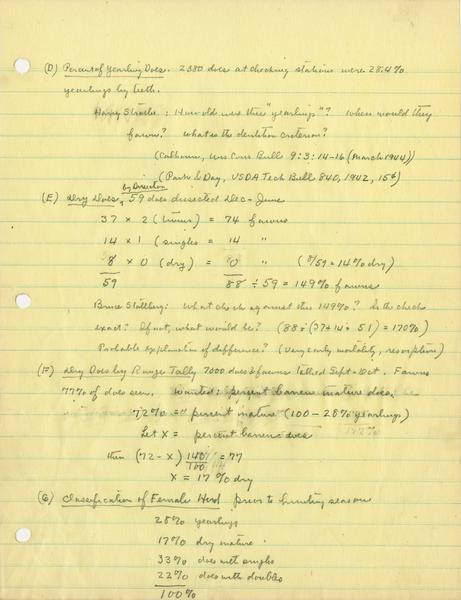 (D) Percent of Yearling Does. 2380 does at checking stations were 28.4%
yearlings by teeth.
Harry Stroebe: How old were these "yearlings"? When would they
fawn? What is the dentition criterion?
(Calhoun, Wis Cons Bull 9:3:14-16 (March 1944))
(Park & Day, USDA Tech Bull 840, 1942, 15¢)
by Dissection
(E) Dry Does, 59 does dissected Dec-June
37 x 2 (twins) = 74 fawns
14 x 1 (singles) = 14 "
8 x 0 (dry) = 0 " (8/59 = 14% dry)
59 88 ÷ 59 = 149% fawns
Bruce Stollberg: What check against this 149%? Is the check
exact? If not, what would be? (88 ÷ (37+14 = 51) = 170%)
Probable explanation of difference? (Very early mortality, resorption)
(F) Dry Does by Range Tally 7000 does & fawns tallied Sept-Oct. Fawns
77% of does seen. Wanted: percent barren mature does.
72% = percent mature (100 - 28% yearlings)
Let X = percent barren does
then (72 - X) 140/100 = 77
X = 17% dry
(G) Classification of Female Herd prior to hunting season
28% yearlings
17% dry mature
33% does with singles
22% does with doubles
100%